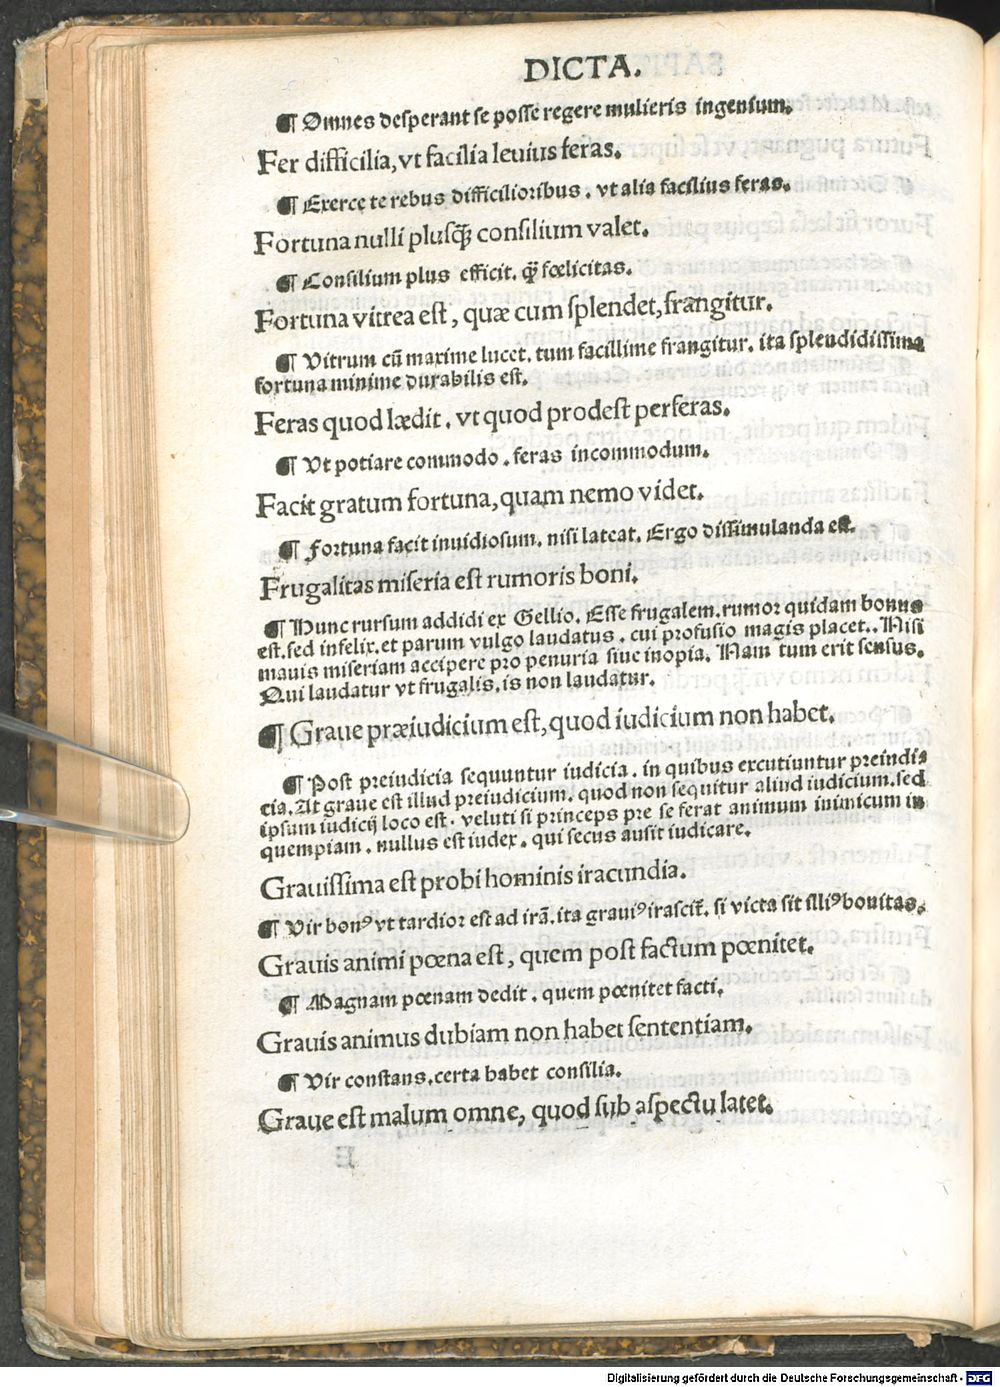 DICTA.
¶ Omnes desperant se posse regere mulieris ingenium.
Fer difficilia, vt facilia leuius feras.
¶ Exerce te rebus difficilioribus. vt alia facilius feras.
Fortuna nulli plusq̃ consilium valet.
¶ Consilium plus efficit. q̃ fœlicitas.
Fortuna vitrea est, quæ cum splendet, frangitur.
¶ Vitrum cũ maxime lucet. tum facillime frangitur. ita splendidissima
fortuna minime durabilis est.
Feras quod lædit. vt quod prodest perferas.
¶ Vt potiare commodo. feras incommodum.
Facit gratum fortuna, quam nemo videt.
¶ Fortuna facit inuidiosum. nisi lateat. Ergo dissimulanda est.
Frugalitas miseria est rumoris boni.
¶ Hunc rursum addidi ex Gellio. Esse frugalem. rumor quidam bonus
est. sed infelix. et parum vulgo laudatus. cui profusio magis placet.. Nisi
mauis miseriam accipere pro penuria siue inopia. Nam tum erit sensus.
Qui laudatur vt frugalis. is non laudatur.
¶ Graue præiudicium est, quod iudicium non habet.
¶ Post preiudicia sequuntur iudicia. in quibus excutiuntur preiudi
cia. At graue est illud preiudicium. quod non sequitur aliud iudicium. sed
ipsum iudicij loco est. veluti si princeps pre se ferat animum inimicum in
quempiam. nullus est iudex. qui secus ausit iudicare.
Grauissima est probi hominis iracundia.
¶ Vir bonꝰ vt tardior est ad irã. ita grauiꝰ irascit̃. si victa sit illiꝰ bonitas.
Grauis animi pœna est, quem post factum pœnitet.
¶ Magnam pœnam dedit. quem pœnitet facti.
Grauis animus dubiam non habet sententiam.
¶ Vir constans. certa habet consilia.
Graue est malum omne, quod sub aspectu latet.
Digitalisierung gefördert durch die Deutsche Forschungsgemeinschaft - DFG